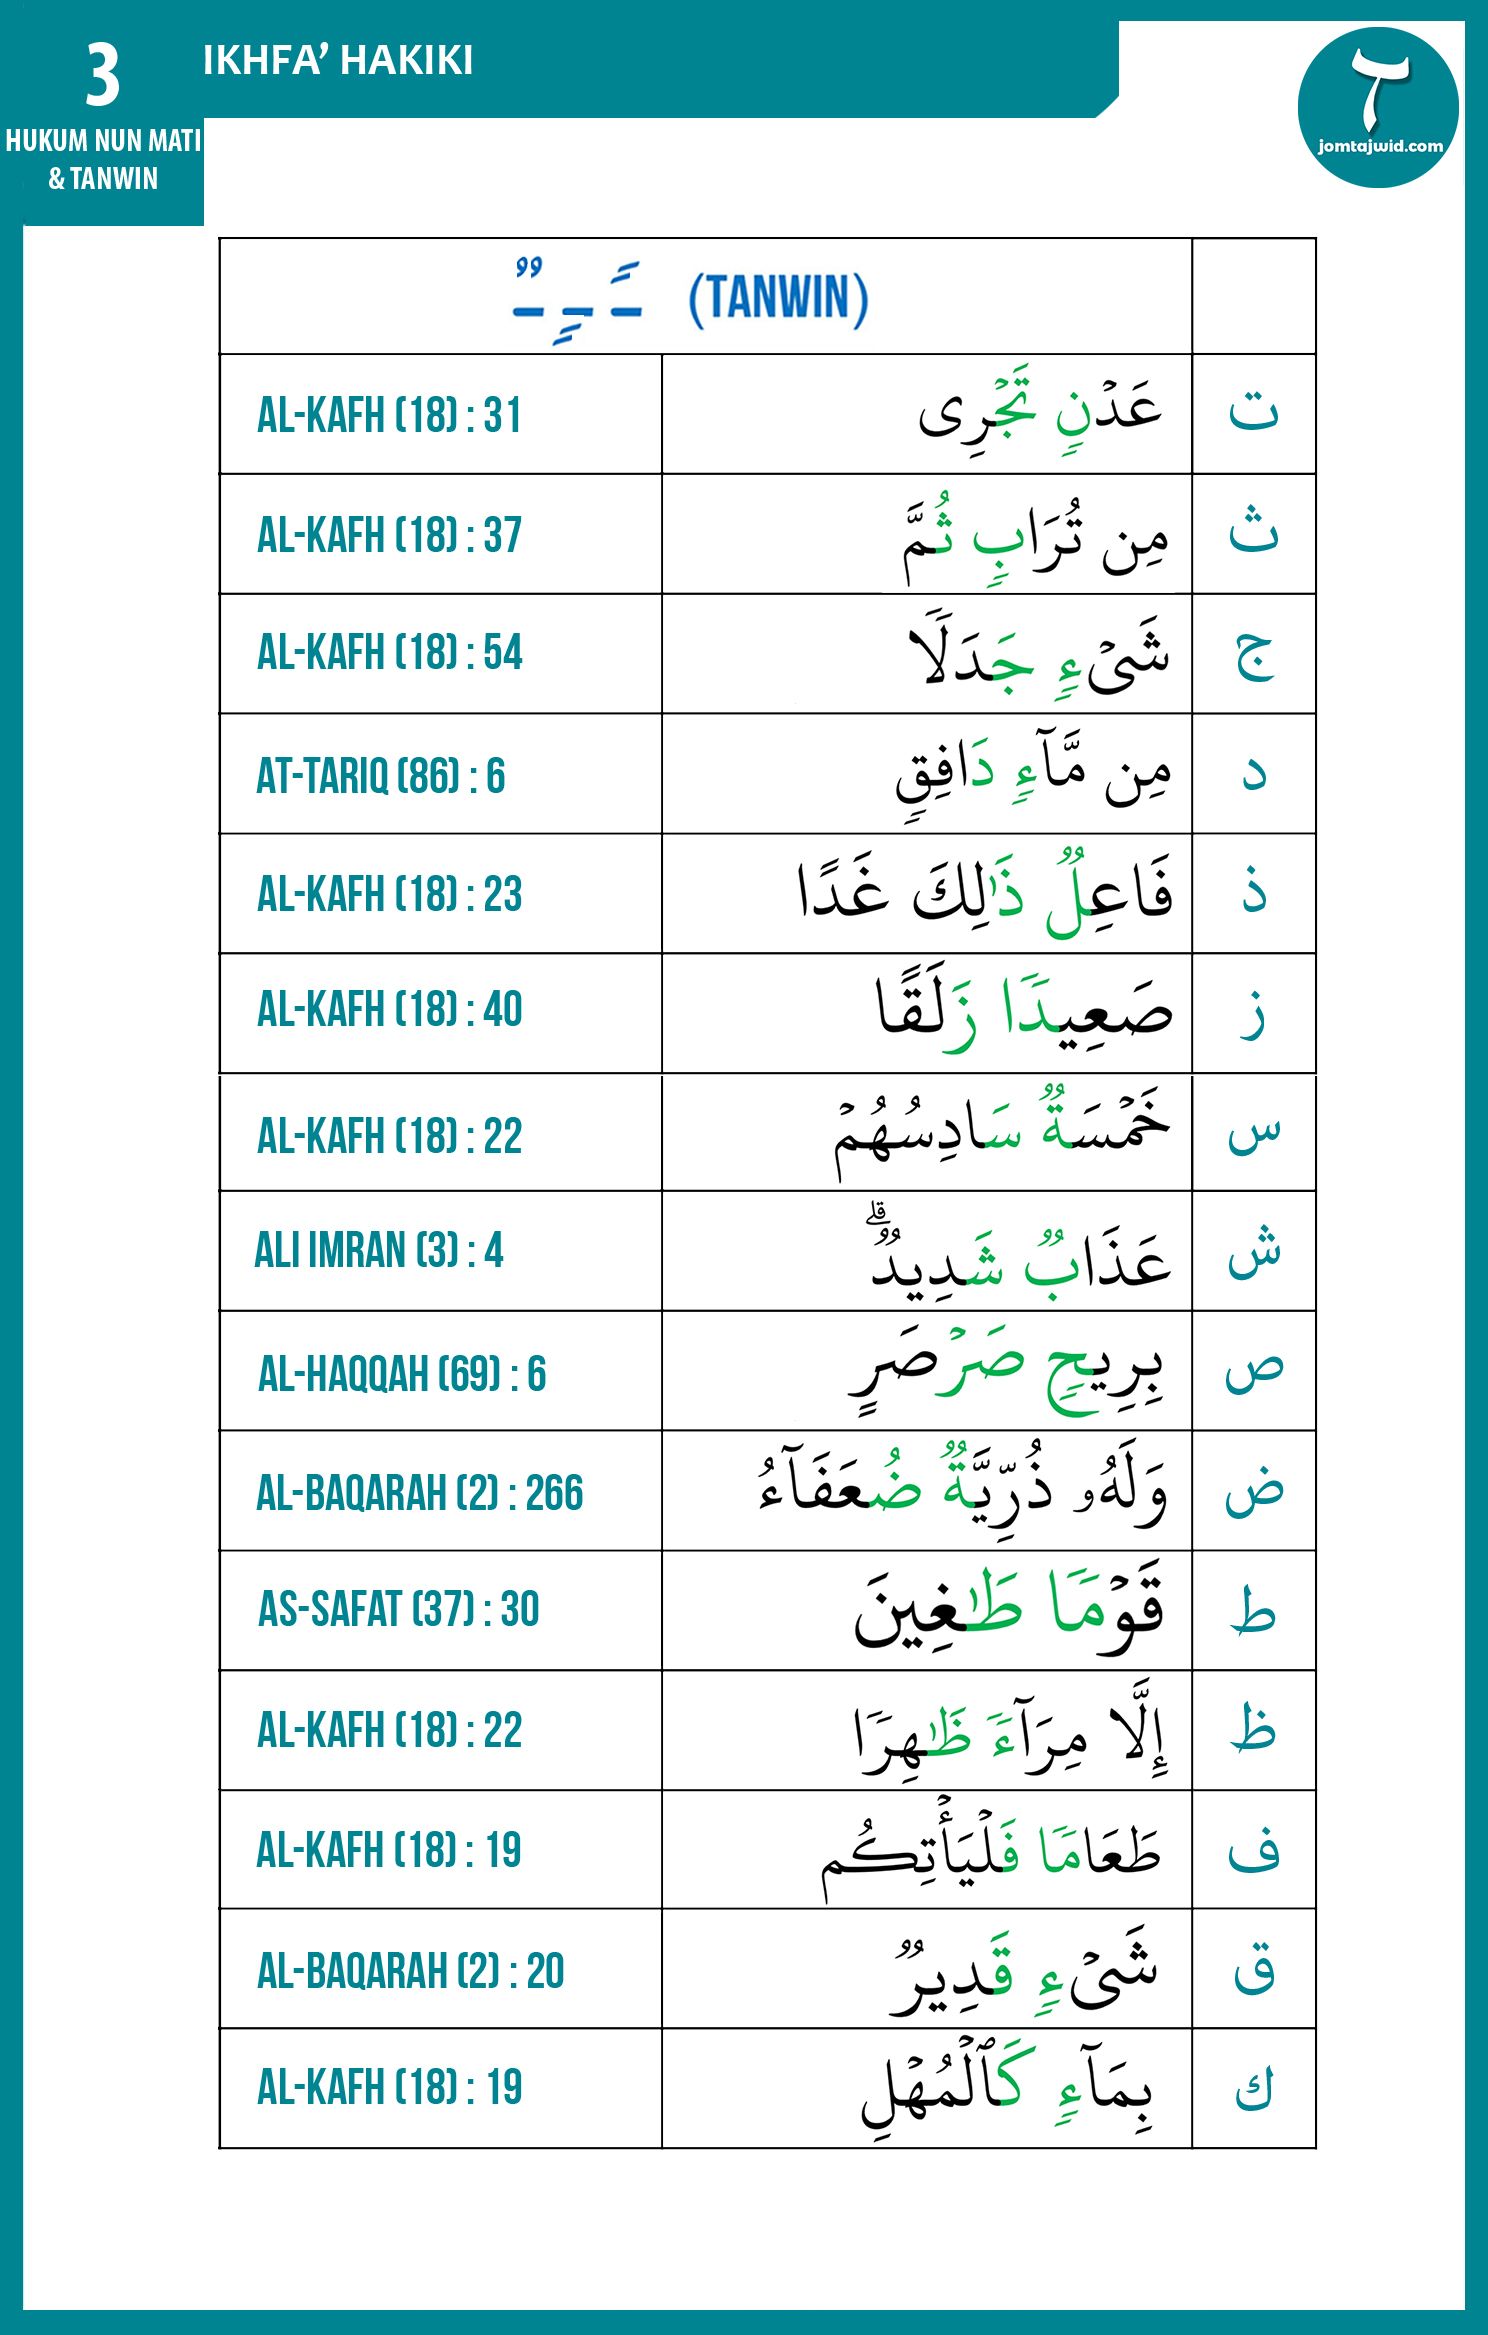 3
IKHFA’ HAKIKI
HUKUM NUN MATI
& TANWIN
jomtajwid.com
ـًـ ـٍـ ـٌـ (TANWIN)
ت عَدۡنٍ تَجۡرِى AL-KAFH (18) : 31
ث مِن تُرَابٍ ثُمَّ AL-KAFH (18) : 37
ج شَىۡءٍ جَدَلًا AL-KAFH (18) : 54
د مِن مَّآءٍ دَافِقٍ AT-TARIQ (86) : 6
ذ فَاعِلٌ ذَٰلِكَ غَدًا AL-KAFH (18) : 23
ز صَعِيدًا زَلَقًا AL-KAFH (18) : 40
س خَمۡسَةٌ سَادِسُهُمۡ AL-KAFH (18) : 22
ش عَذَابٌ شَدِيدٌۗ ALI IMRAN (3) : 4
ص بِرِيحٍ صَرۡصَرٍ AL-HAQQAH (69) : 6
ض وَلَهُۥ ذُرِّيَّةٌ ضُعَفَآءُ AL-BAQARAH (2) : 266
ط قَوۡمًا طَٰغِينَ AS-SAFAT (37) : 30
ظ إِلَّا مِرَآءً ظَٰهِرًا AL-KAFH (18) : 22
ف طَعَامًا فَلۡيَأۡتِكُم AL-KAFH (18) : 19
ق شَىۡءٍ قَدِيرٌ AL-BAQARAH (2) : 20
ك بِمَآءٍ كَٱلۡمُهۡلِ AL-KAFH (18) : 19